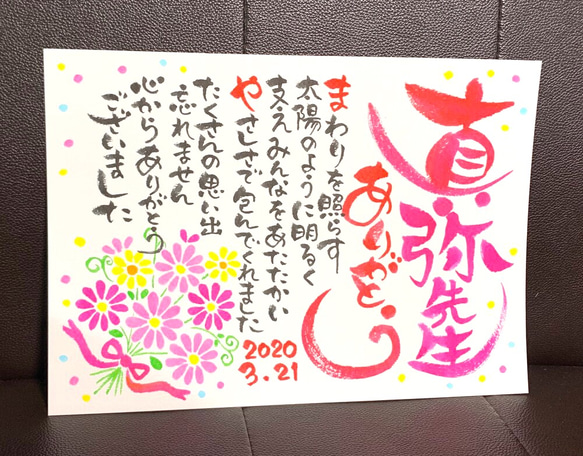 真弥先生
ありがとう
まわりを照らす
太陽のように明るく
支えみんなをあたたかい
やさしさで包んでくれました
たくさんの思い出
忘れません
心からありがとう
ございました
2020
3.21